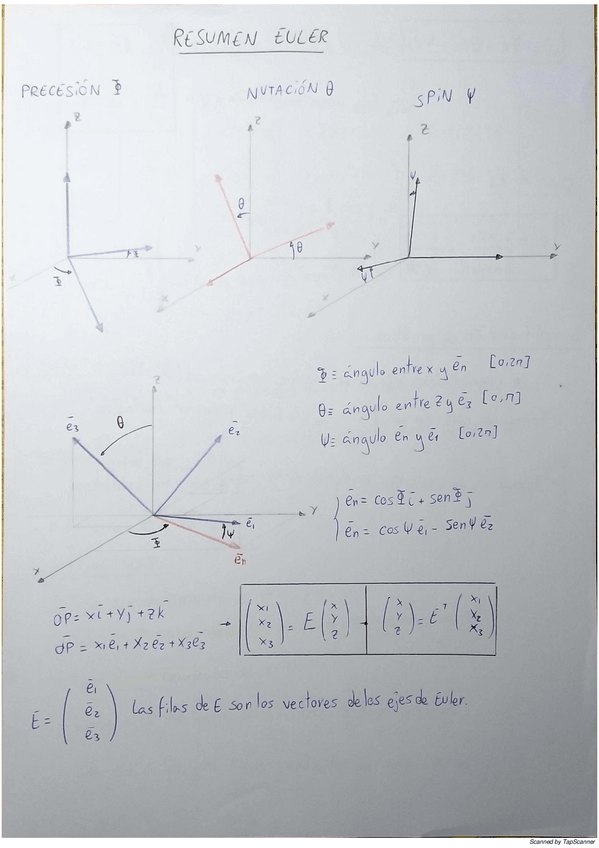 RESUMEN EULER
PRECESIÓN Φ
NUTACIÓN θ
SPIN Ψ
Z
Y
X
Φ
Z
θ
θ
Y
X
Z
Ψ
Y
Ψ
X
Φ ≡ ángulo entre x y ēn [0,2π]
θ ≡ ángulo entre z y ē3 [0,π]
Ψ ≡ ángulo ēn y ē1 [0,2π]
Z
θ
ē3
ē2
Y
ē1
Ψ
Φ
ēn
X
ēn = cosΦ ī + senΦ j̄
ēn = cosΨ ē1 - senΨ ē2
ōP = x ī + y j̄ + z k̄
ōP = x1 ē1 + x2 ē2 + x3 ē3
→ (x1 x2 x3) = E (x y z) → (x y z) = E^T (x1 x2 x3)
E = (ē1 ē2 ē3) Las filas de E son los vectores de los ejes de Euler.
Scanned by TapScanner